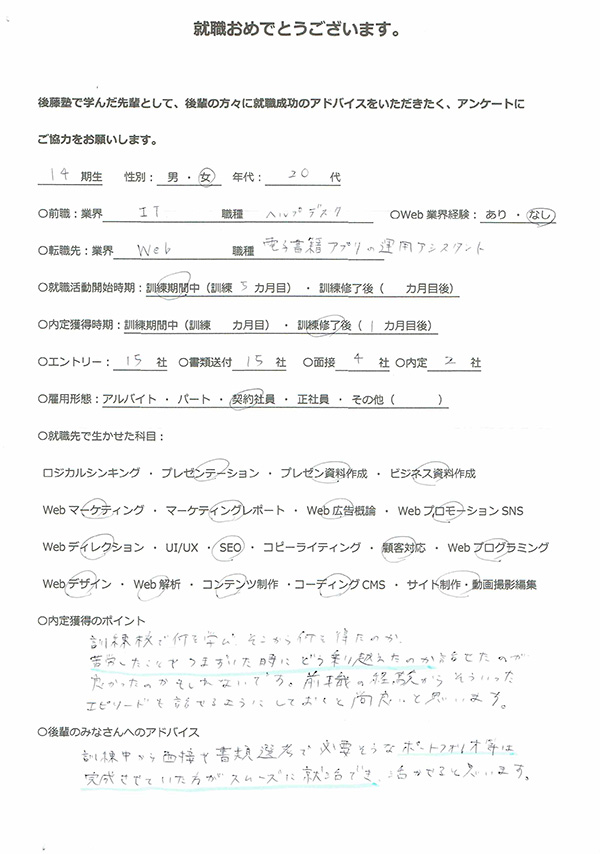 就職おめでとうございます。
後藤塾で学んだ先輩として、後輩の方々に就職成功のアドバイスをいただきたく、アンケートに
ご協力をお願いします。
14 期生 性別: 男 ・ 女 年代: 20 代
○前職:業界 IT 職種 ヘルプデスク ○Web 業界経験: あり ・ なし
○転職先:業界 Web 職種 電子書籍アプリの運用アシスタント
○就職活動開始時期:訓練期間中(訓練 5 カ月目) ・ 訓練修了後( カ月目後)
○内定獲得時期:訓練期間中(訓練 カ月目) ・ 訓練修了後( 1 カ月目後)
○エントリー: 15 社 ○書類送付 15 社 ○面接 4 社 ○内定 2 社
○雇用形態:アルバイト ・ パート ・ 契約社員 ・ 正社員 ・ その他( )
○就職先で生かせた科目:
ロジカルシンキング ・ プレゼンテーション ・ プレゼン資料作成 ・ ビジネス資料作成
Web マーケティング ・ マーケティングレポート ・ Web 広告概論 ・ Web プロモーション SNS
Web ディレクション ・ UI/UX ・ SEO ・ コピーライティング ・ 顧客対応 ・ Web プログラミング
Web デザイン ・ Web 解析 ・ コンテンツ制作 ・コーディング CMS ・ サイト制作・動画撮影編集
○内定獲得のポイント
訓練校で何を学び、そこから何を得たのか、
苦労したことでつまずいた時にどう乗り越えたのか話せたのが
良かったのかもしれないです。前職の経験からそういった
エピソードも話せるようにしておくと尚良いと思います。
○後輩のみなさんへのアドバイス
訓練中から面接や書類選考で必要そうなポートフォリオ等は
完成させていた方がスムーズに就活でき、活かせると思います。